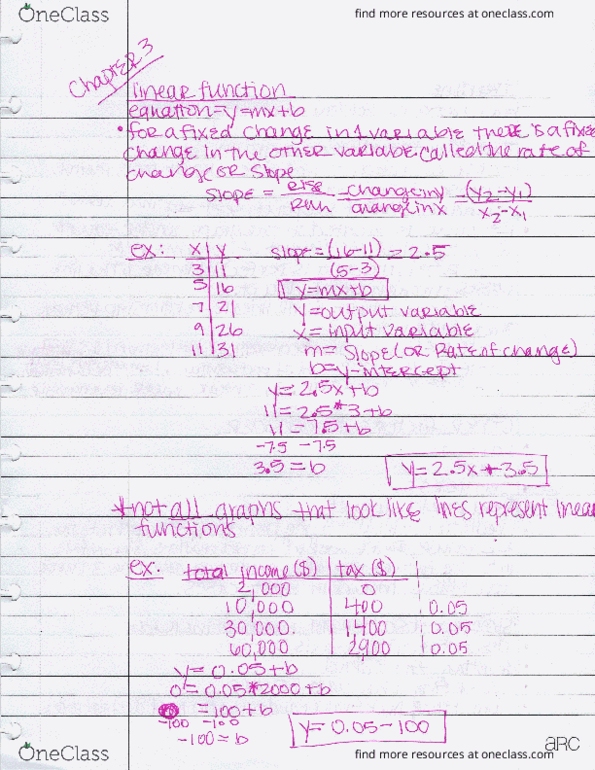 OneClass
find more resources at oneclass.com
Chapter 3
linear function
equation=y=mx+b
• for a fixed change in 1 variable there is a fixed
change in the other variable. called the rate of
change or slope
slope = rise/run = change in y/change in x = (y₂-y₁)/x₂-x₁
ex: x | y slope = (16-11)/(5-3) = 2.5
3 | 11
5 | 16 y=mx+b
7 | 21 y=output variable
9 | 26 x=input variable
11 | 31 m= slope (or rate of change)
b=y-intercept
y=2.5x+b
11=2.5*3+b
11=7.5+b
-7.5 -7.5
3.5=b y=2.5x+3.5
*not all graphs that look like lines represent linear
functions
ex: total income ($) | tax ($)
2,000 | 0
10,000 | 400 | 0.05
30,000 | 1,400 | 0.05
60,000 | 2900 | 0.05
y=0.05+b
0=0.05*2000+b
=100+b
-100 -100
-100=b y=0.05-100
OneClass
find more resources at oneclass.com